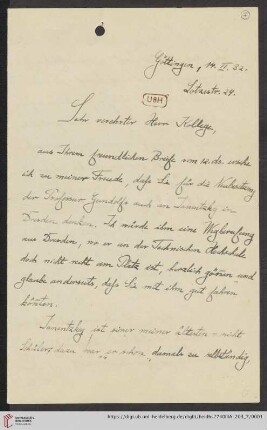 Göttingen, 14. II. 32.
Lotzestr. 29.
UBH
Sehr verehrter Herr Kollege,
aus Ihrem freundlichen Briefe vom 12. ds. ersehe
ich zu meiner Freude, daß Sie für die Vertretung
der Professur Gundolfs auch an Janentzky in
Dresden denken. Ich würde ihm eine Wegberufung
aus Dresden, wo er an der Technischen Hochschule
doch nicht recht am Platze ist, herzlich gönnen und
glaube andererseits, daß Sie mit ihm gut fahren
könnten.
Janentzky ist einer meiner ältesten – nicht
Schüler, denn war er schon damals zu selbständig,
UNIVERSITÄTS-
BIBLIOTHEK
HEIDELBERG